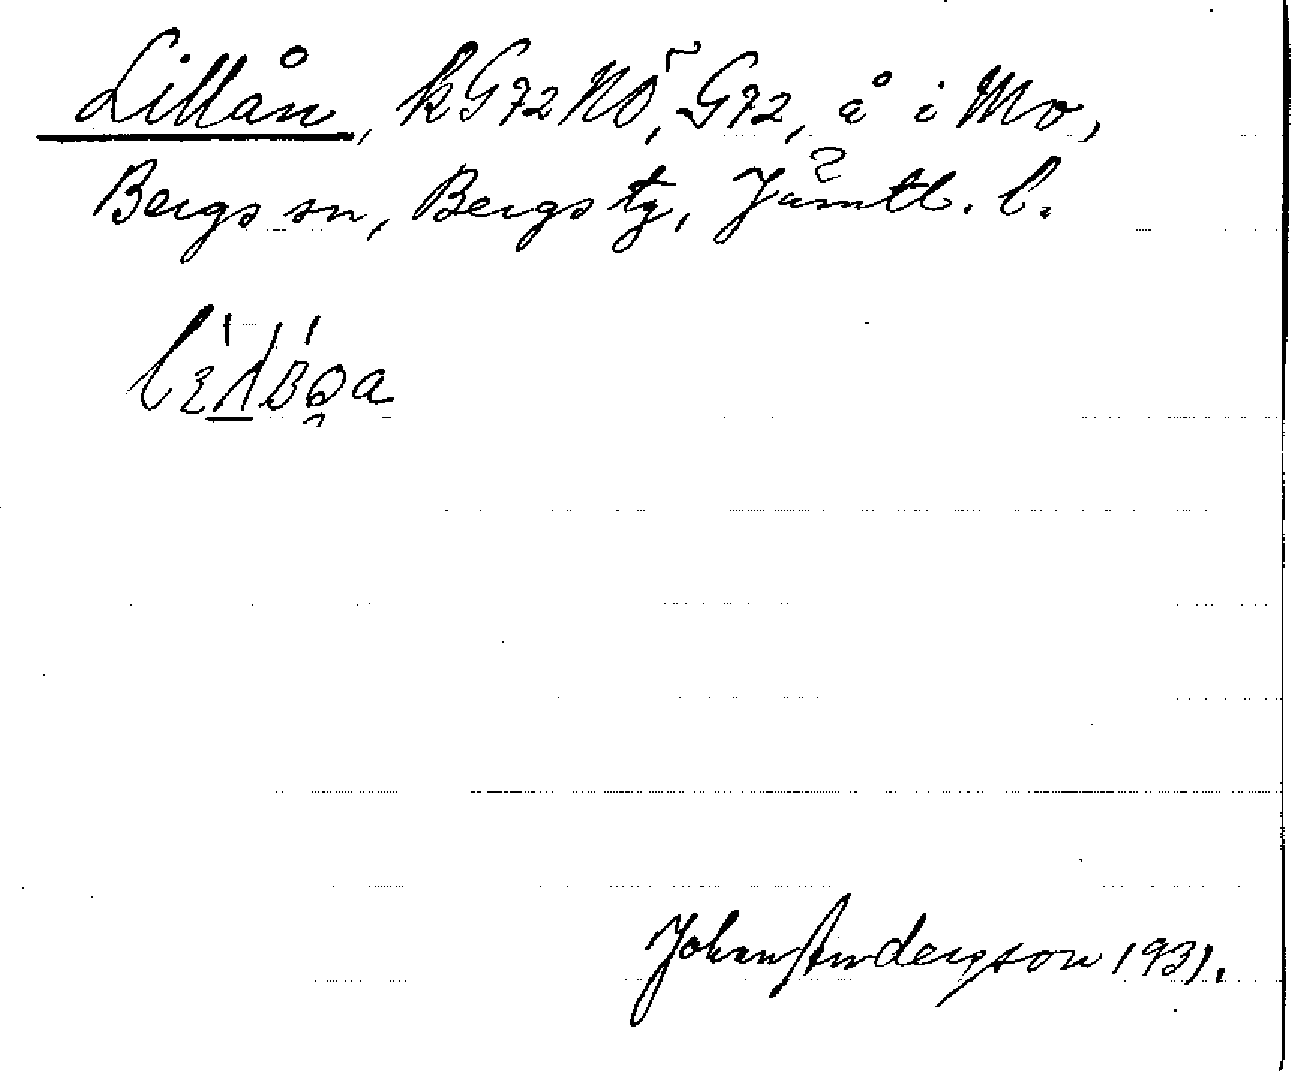 Lillån, kG72NÖ, G72, å i Mo,
Bergs sn, Bergs tg, Jämtl. l.
Johan Anderson 1931.